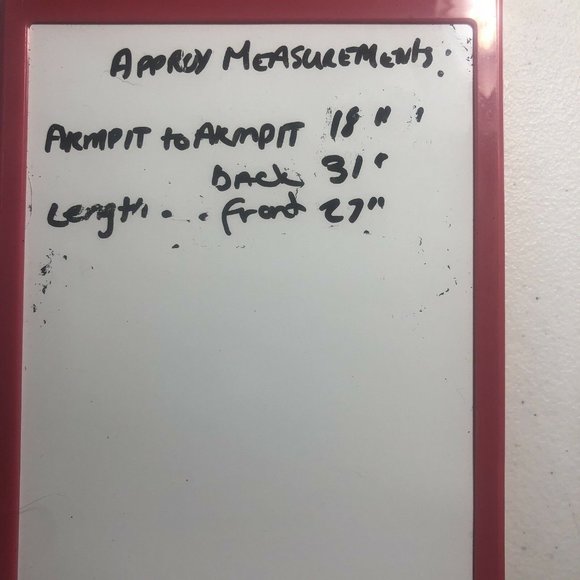 APPROX MEASUREMENTS.
ARMPIT to ARMPIT 18"
BACK 31"
Length . . front 27"